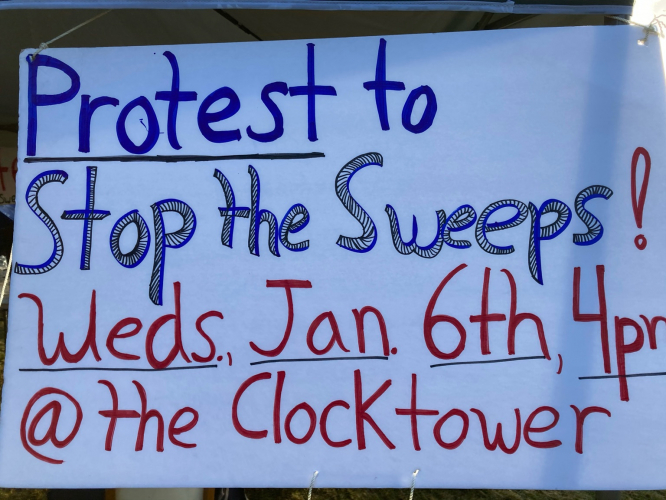 Protest to
Stop the Sweeps!
Weds., Jan. 6th, 4pm
@ the Clocktower